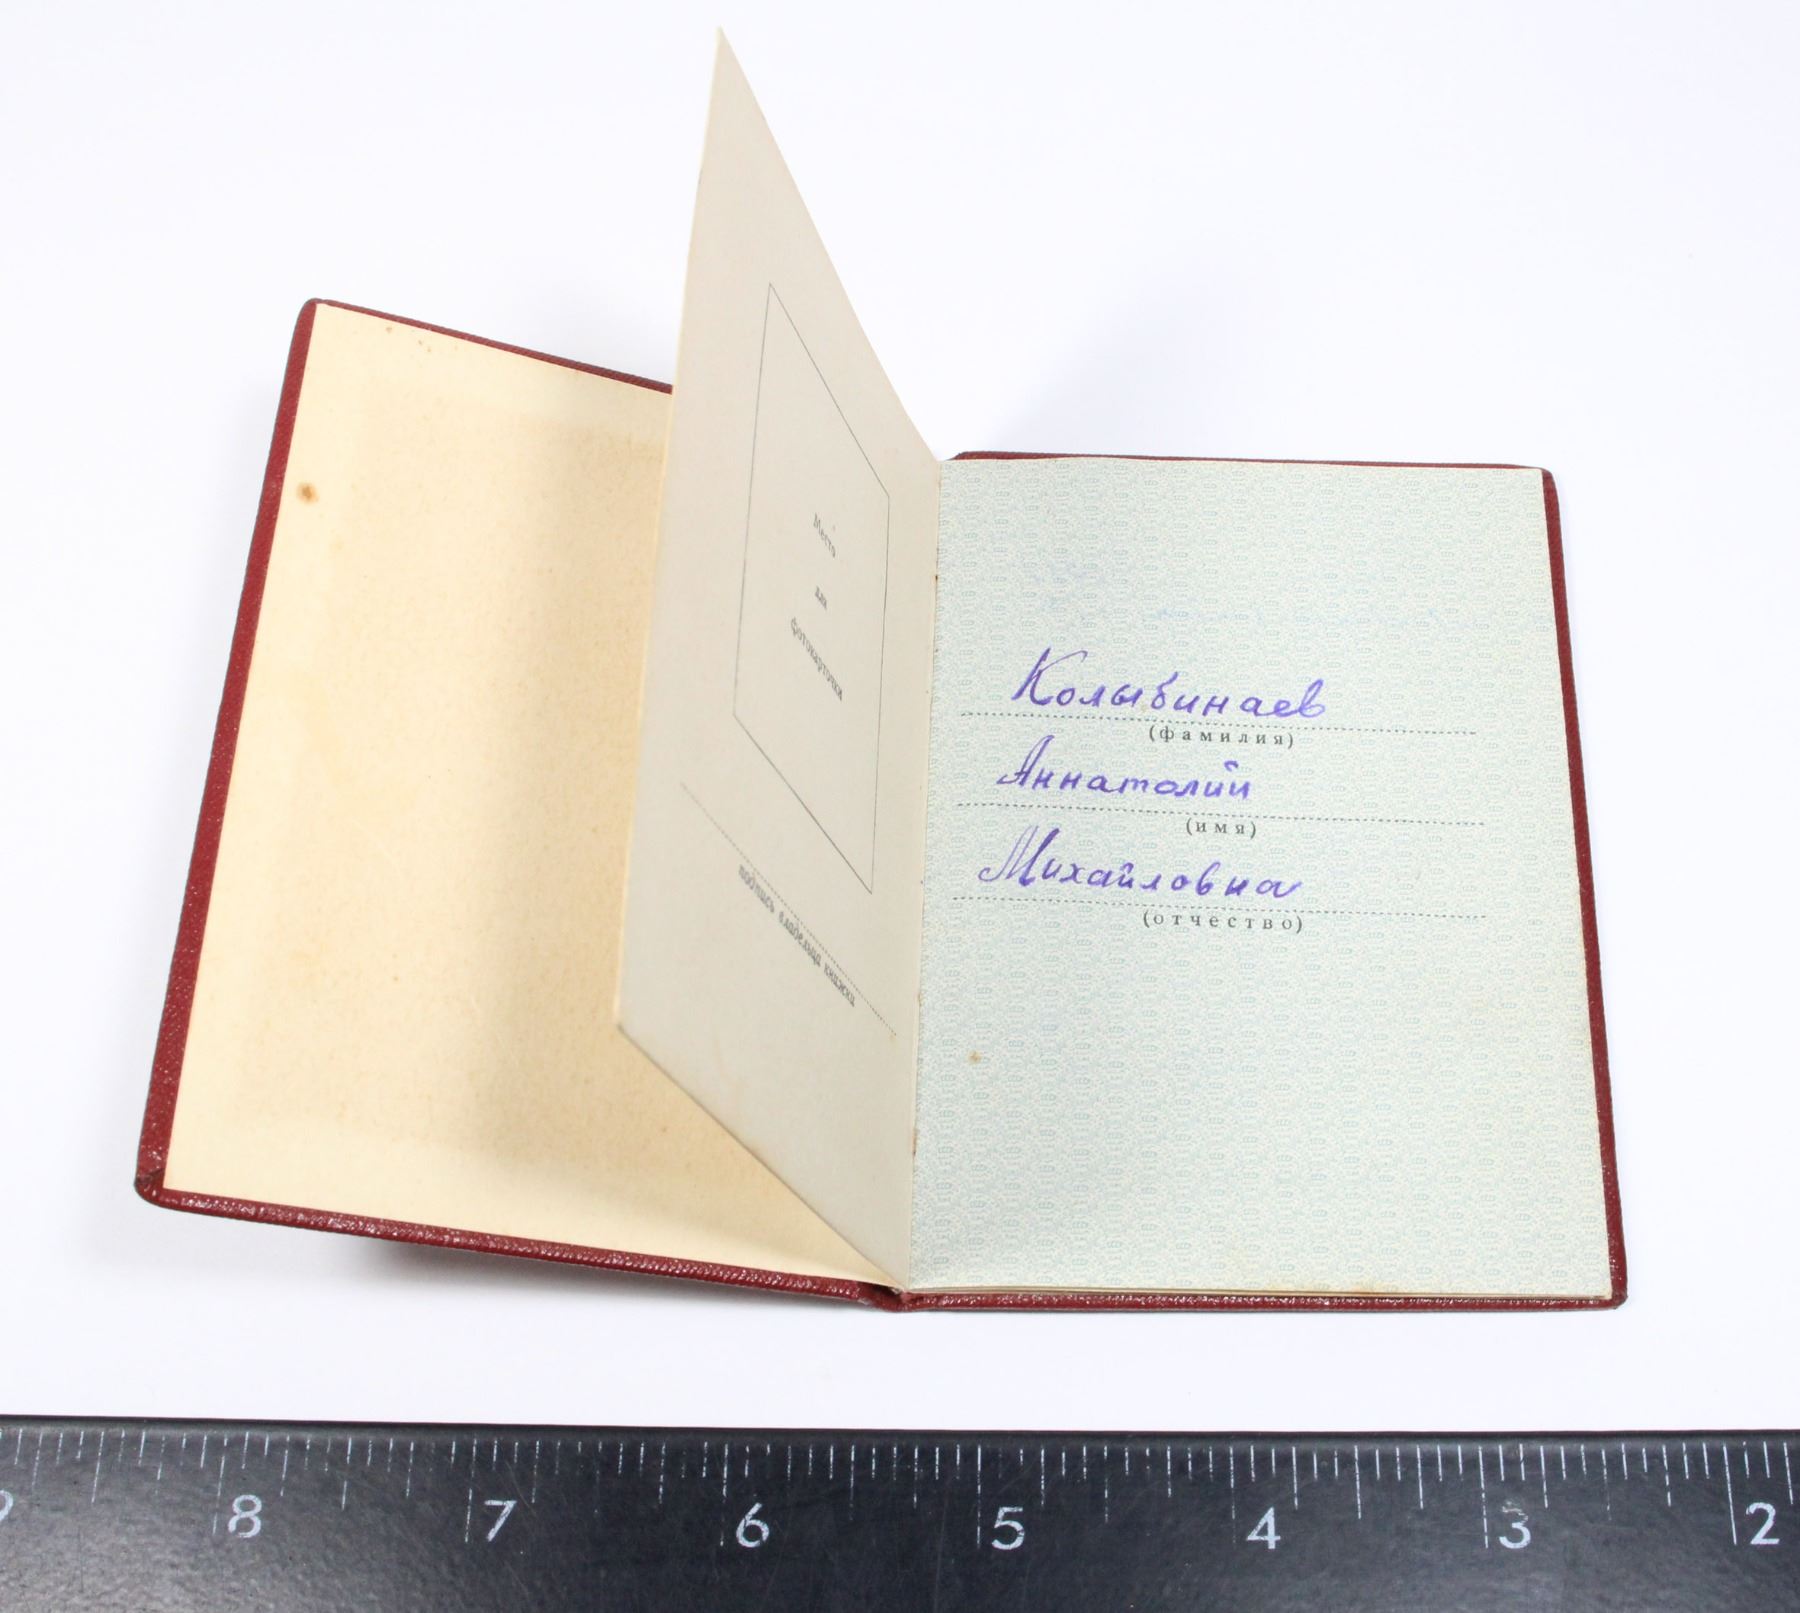 Место
для
фотокарточки
подпись владельца книжки
Колыбинаев
(фамилия)
Аннатолий
(имя)
Михайловна
(отчество)
9 8 7 6 5 4 3 2